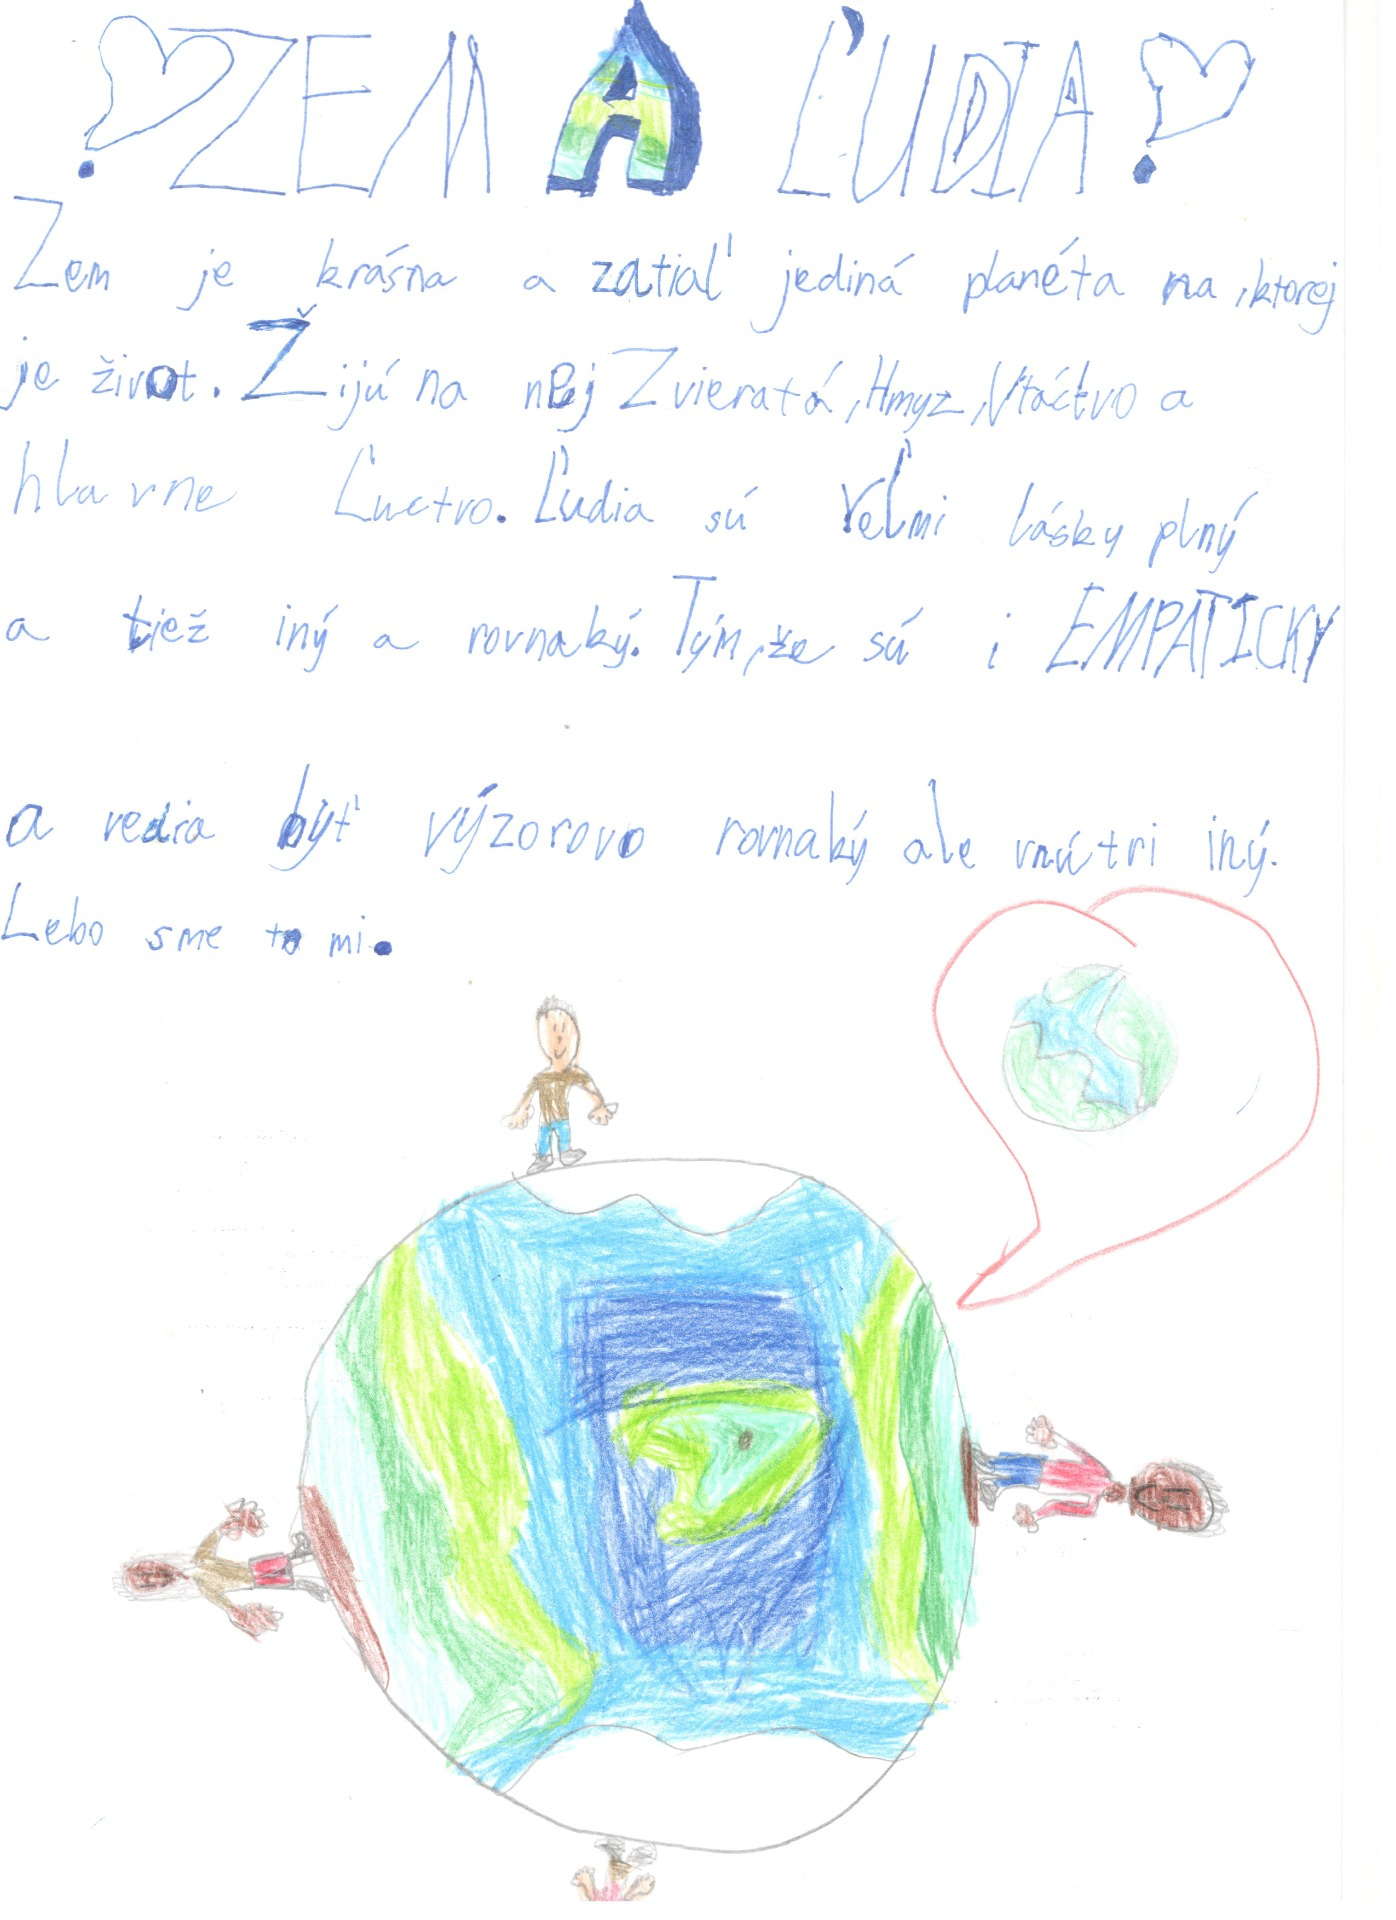 ZEM A ĽUDIA
Zem je krásna a zatiaľ jediná planéta na ,ktorej
je život. Žijú na nej Zvieratá, Hmyz, Vtáctvo a
hlavne Ľuctvo. Ľudia sú Veľmi lásky plný
a tiež iný a rovnaký. Tým, že sú i EMPATICKY
a vedia byť výzorovo rovnaký ale vnútri iný.
Lebo sme to mi.